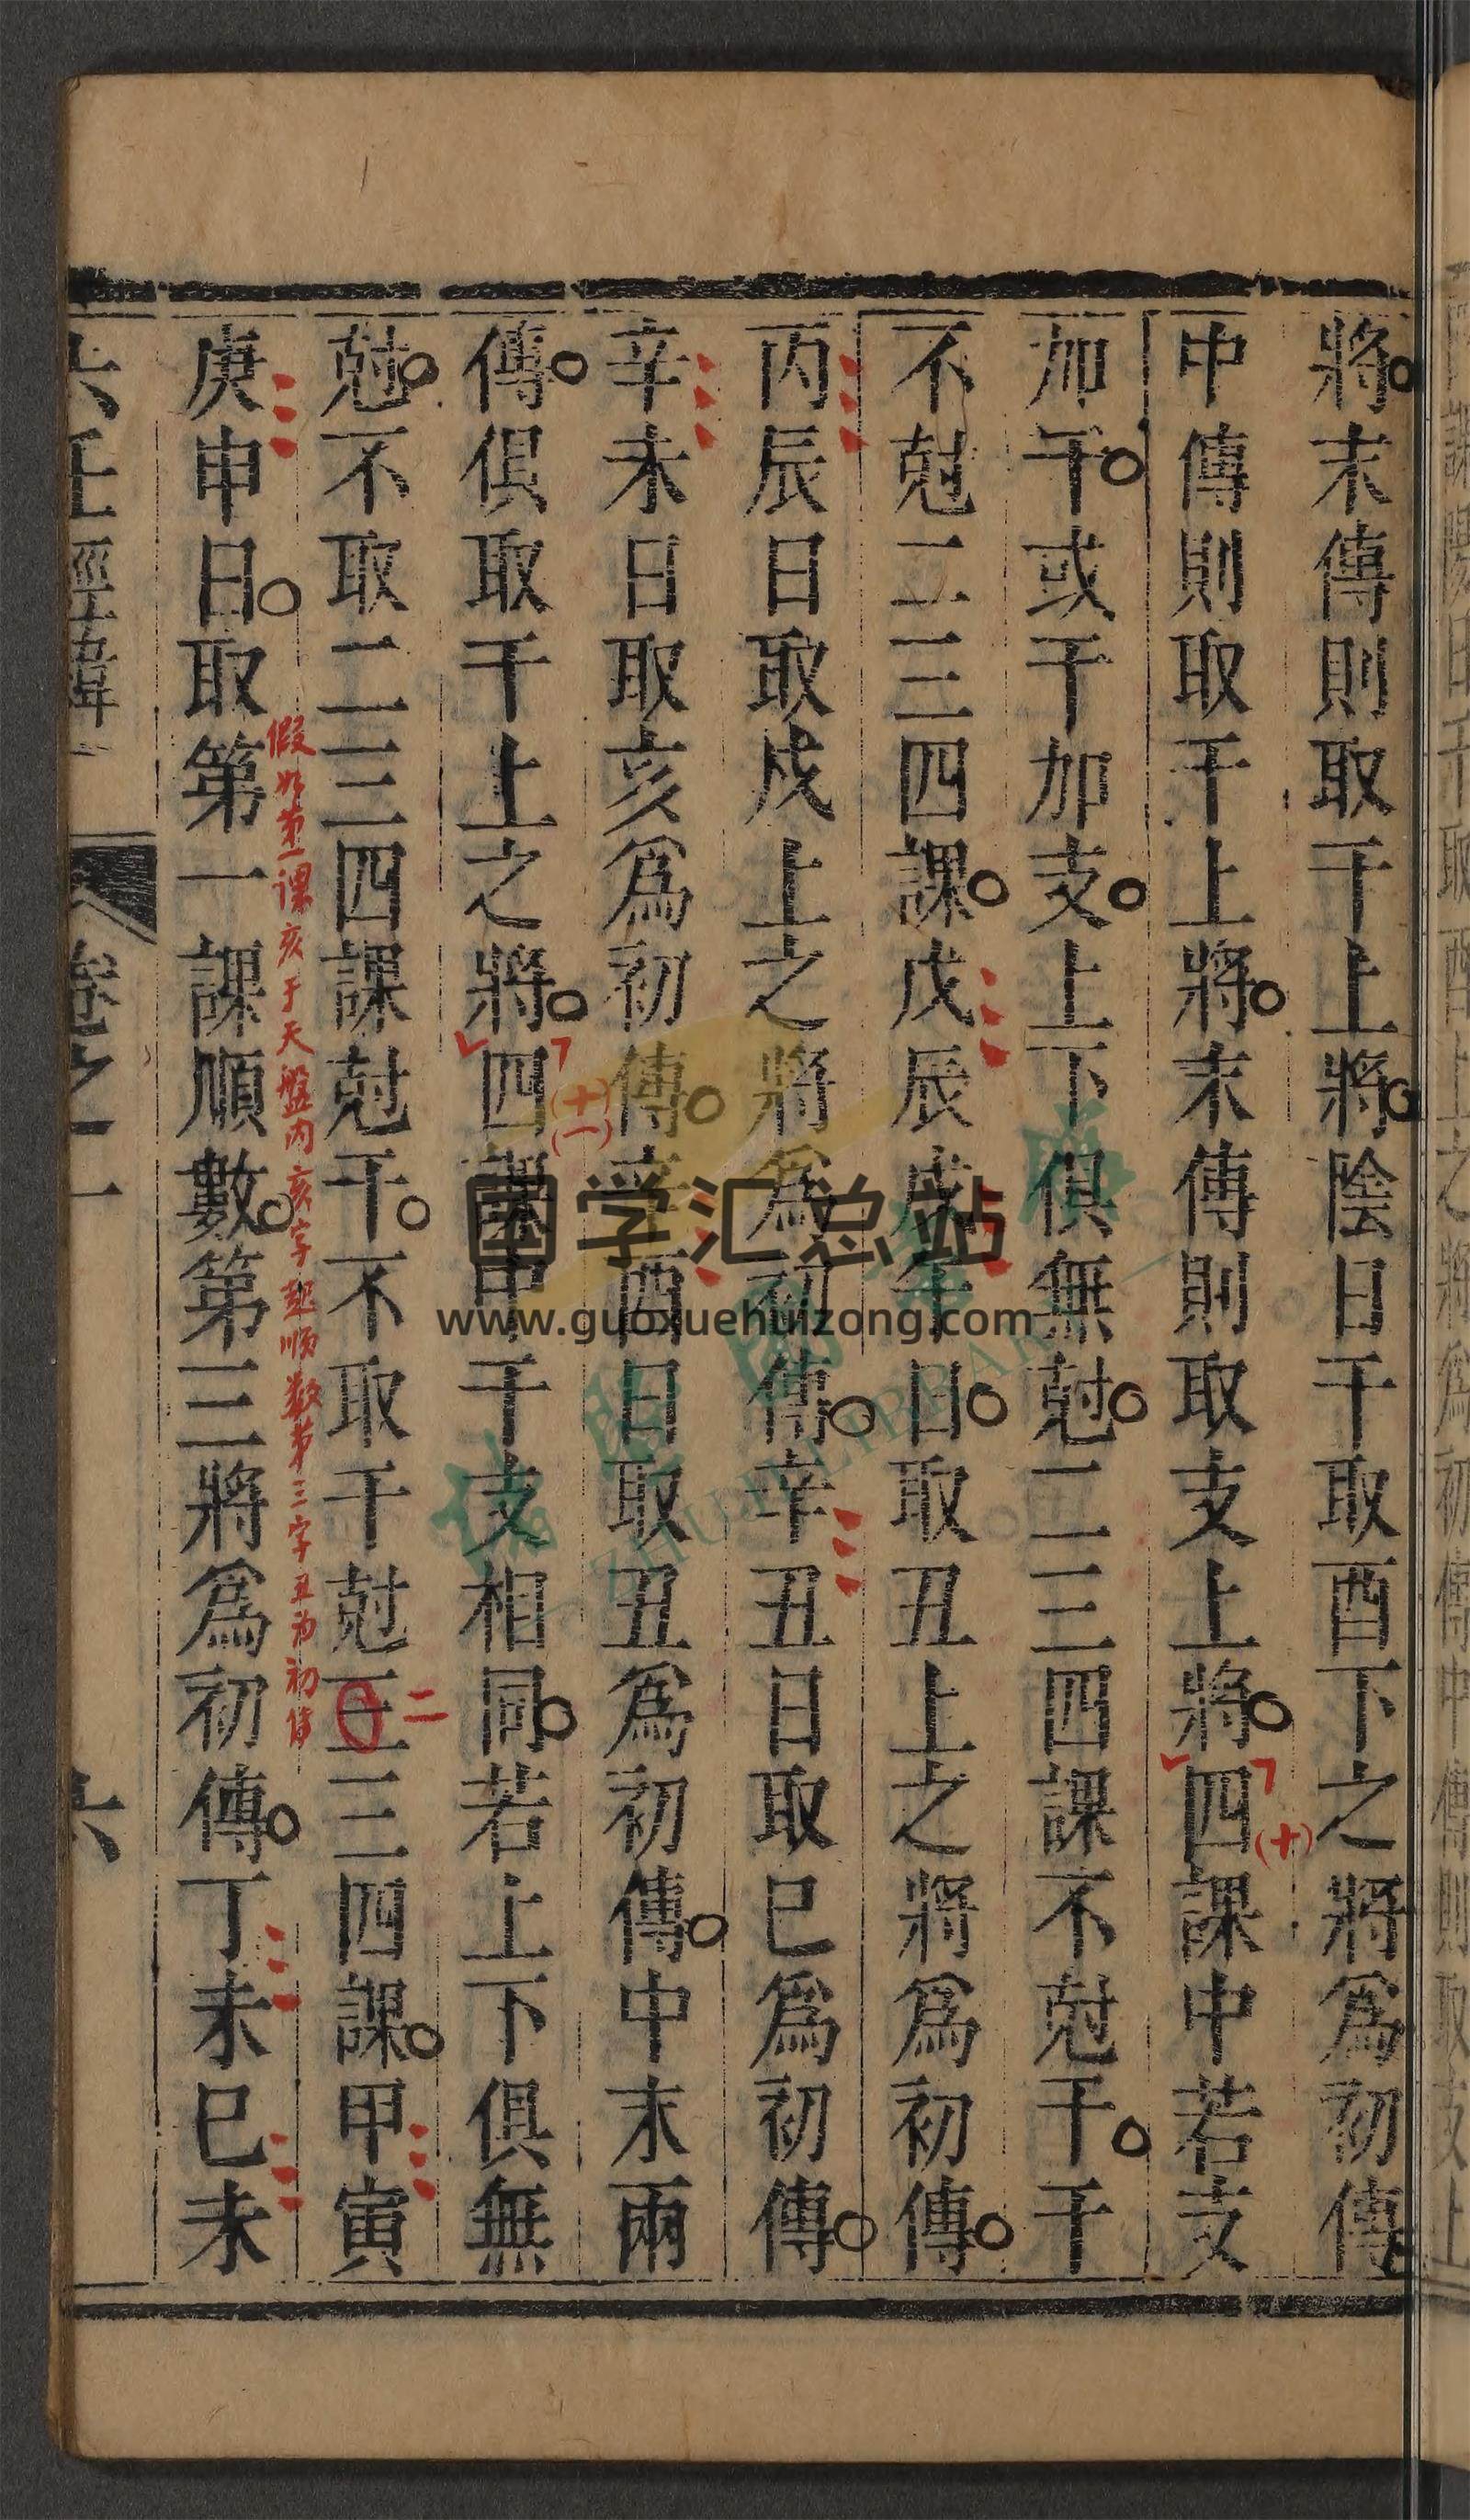 將末傳則取干上將陰日干取酉下之將爲初傳
中傳則取干上將末傳則取支上將四課中若支
加干或干加支上下俱無尅二三四課不尅干干
不尅二三四課戊辰戊午日取丑上之將爲初傳
丙辰日取戌上之將爲初傳辛丑日取巳爲初傳
辛未日取亥爲初傳辛酉日取丑爲初傳中末兩
傳俱取干上之將四課中干支相同若上下俱無
尅不取二三四課尅干不取干尅二三四課甲寅
庚申日取第一課順數第三將爲初傳丁未巳未
六壬經緯
卷之一
六
假如第一课亥于天盤内亥字起顺数第三字丑为初传
(十)
(十一)
二
国学汇总站
www.guoxuehuizong.com